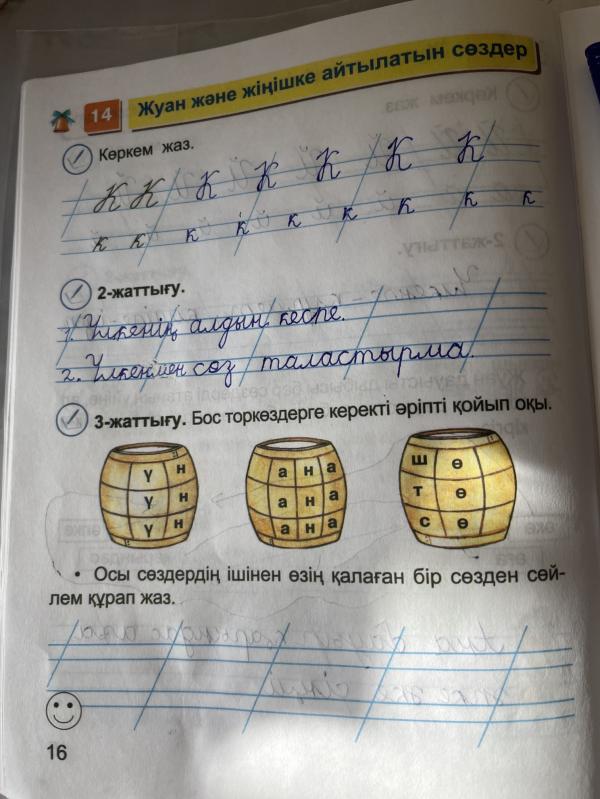 14 Жуан және жіңішке айтылатын сөздер
Көркем жаз.
К К К К К К К
к к к к к к к к к
2-жаттығу.
1. Үлкенің алдын кеспе.
2. Үлкенмен сөз таластырма.
3-жаттығу. Бос торкөздерге керекті әріпті қойып оқы.
ү н а н а ш ө
ү н а н а т ө
ү н а н а с ө
• Осы сөздердің ішінен өзің қалаған бір сөзден сөй-
лем құрап жаз.
16